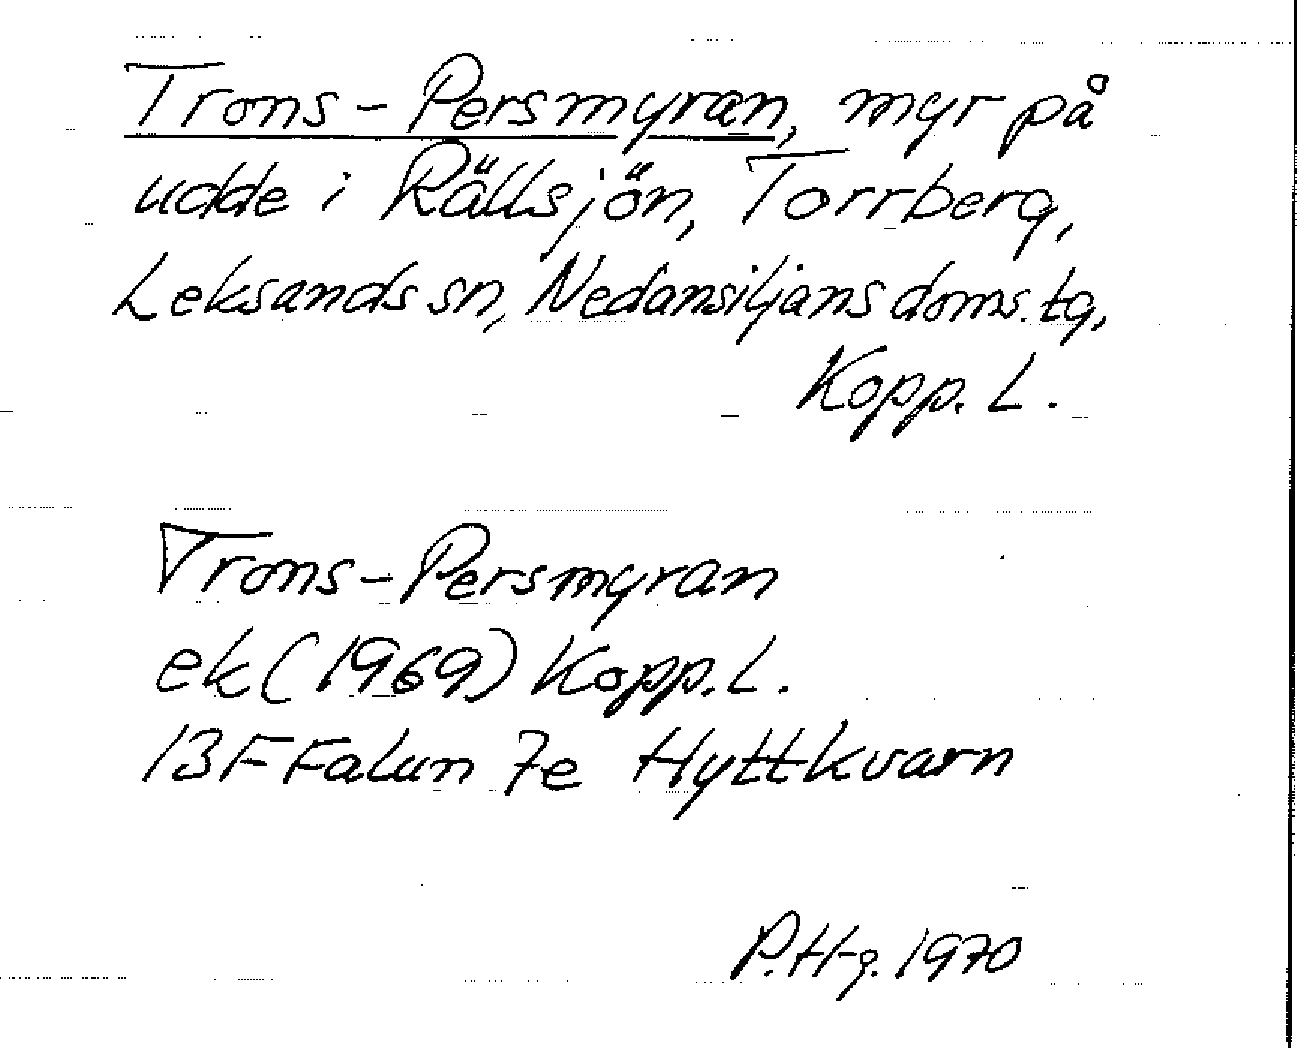 Trons-Persmyran, myr på
udde i Rällsjön, Torrberg,
Leksands sn, Nedansiljans doms.tg,
Kopp. L.
Trons-Persmyran
ek (1969) Kopp. L.
13F Falun 7e Hyttkvarn
P.H-g. 1970